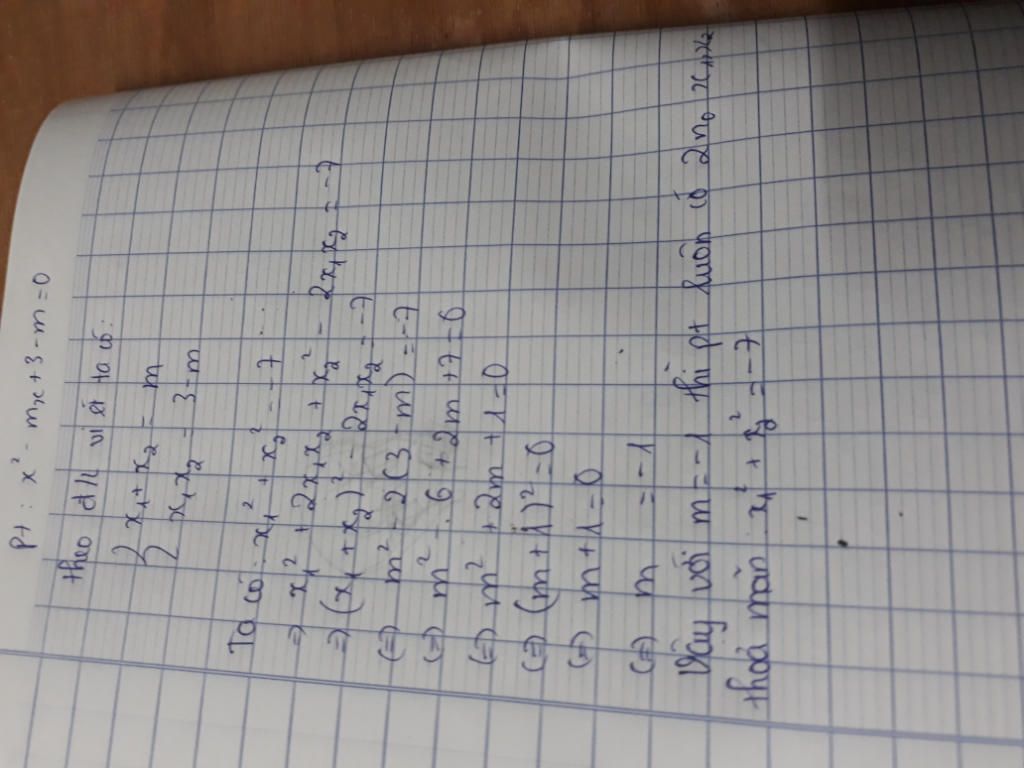 pt : x² - mx + 3 - m = 0
theo đ/l vi ét ta có:
{ x₁ + x₂ = m
x₁ x₂ = 3 - m
Ta có: x₁² + x₂² = -7
=> x₁² + 2x₁x₂ + x₂² - 2x₁x₂ = -7
=> (x₁ + x₂)² - 2x₁x₂ = -7
(=) m² - 2(3 - m) = -7
(=) m² - 6 + 2m + 7 = 0
(=) m² + 2m + 1 = 0
(=) (m + 1)² = 0
(=) m + 1 = 0
(=) m = -1
Vậy với m = -1 thì pt luôn có 2 n₀ x₁, x₂
thoả mãn x₁² + x₂² = -7